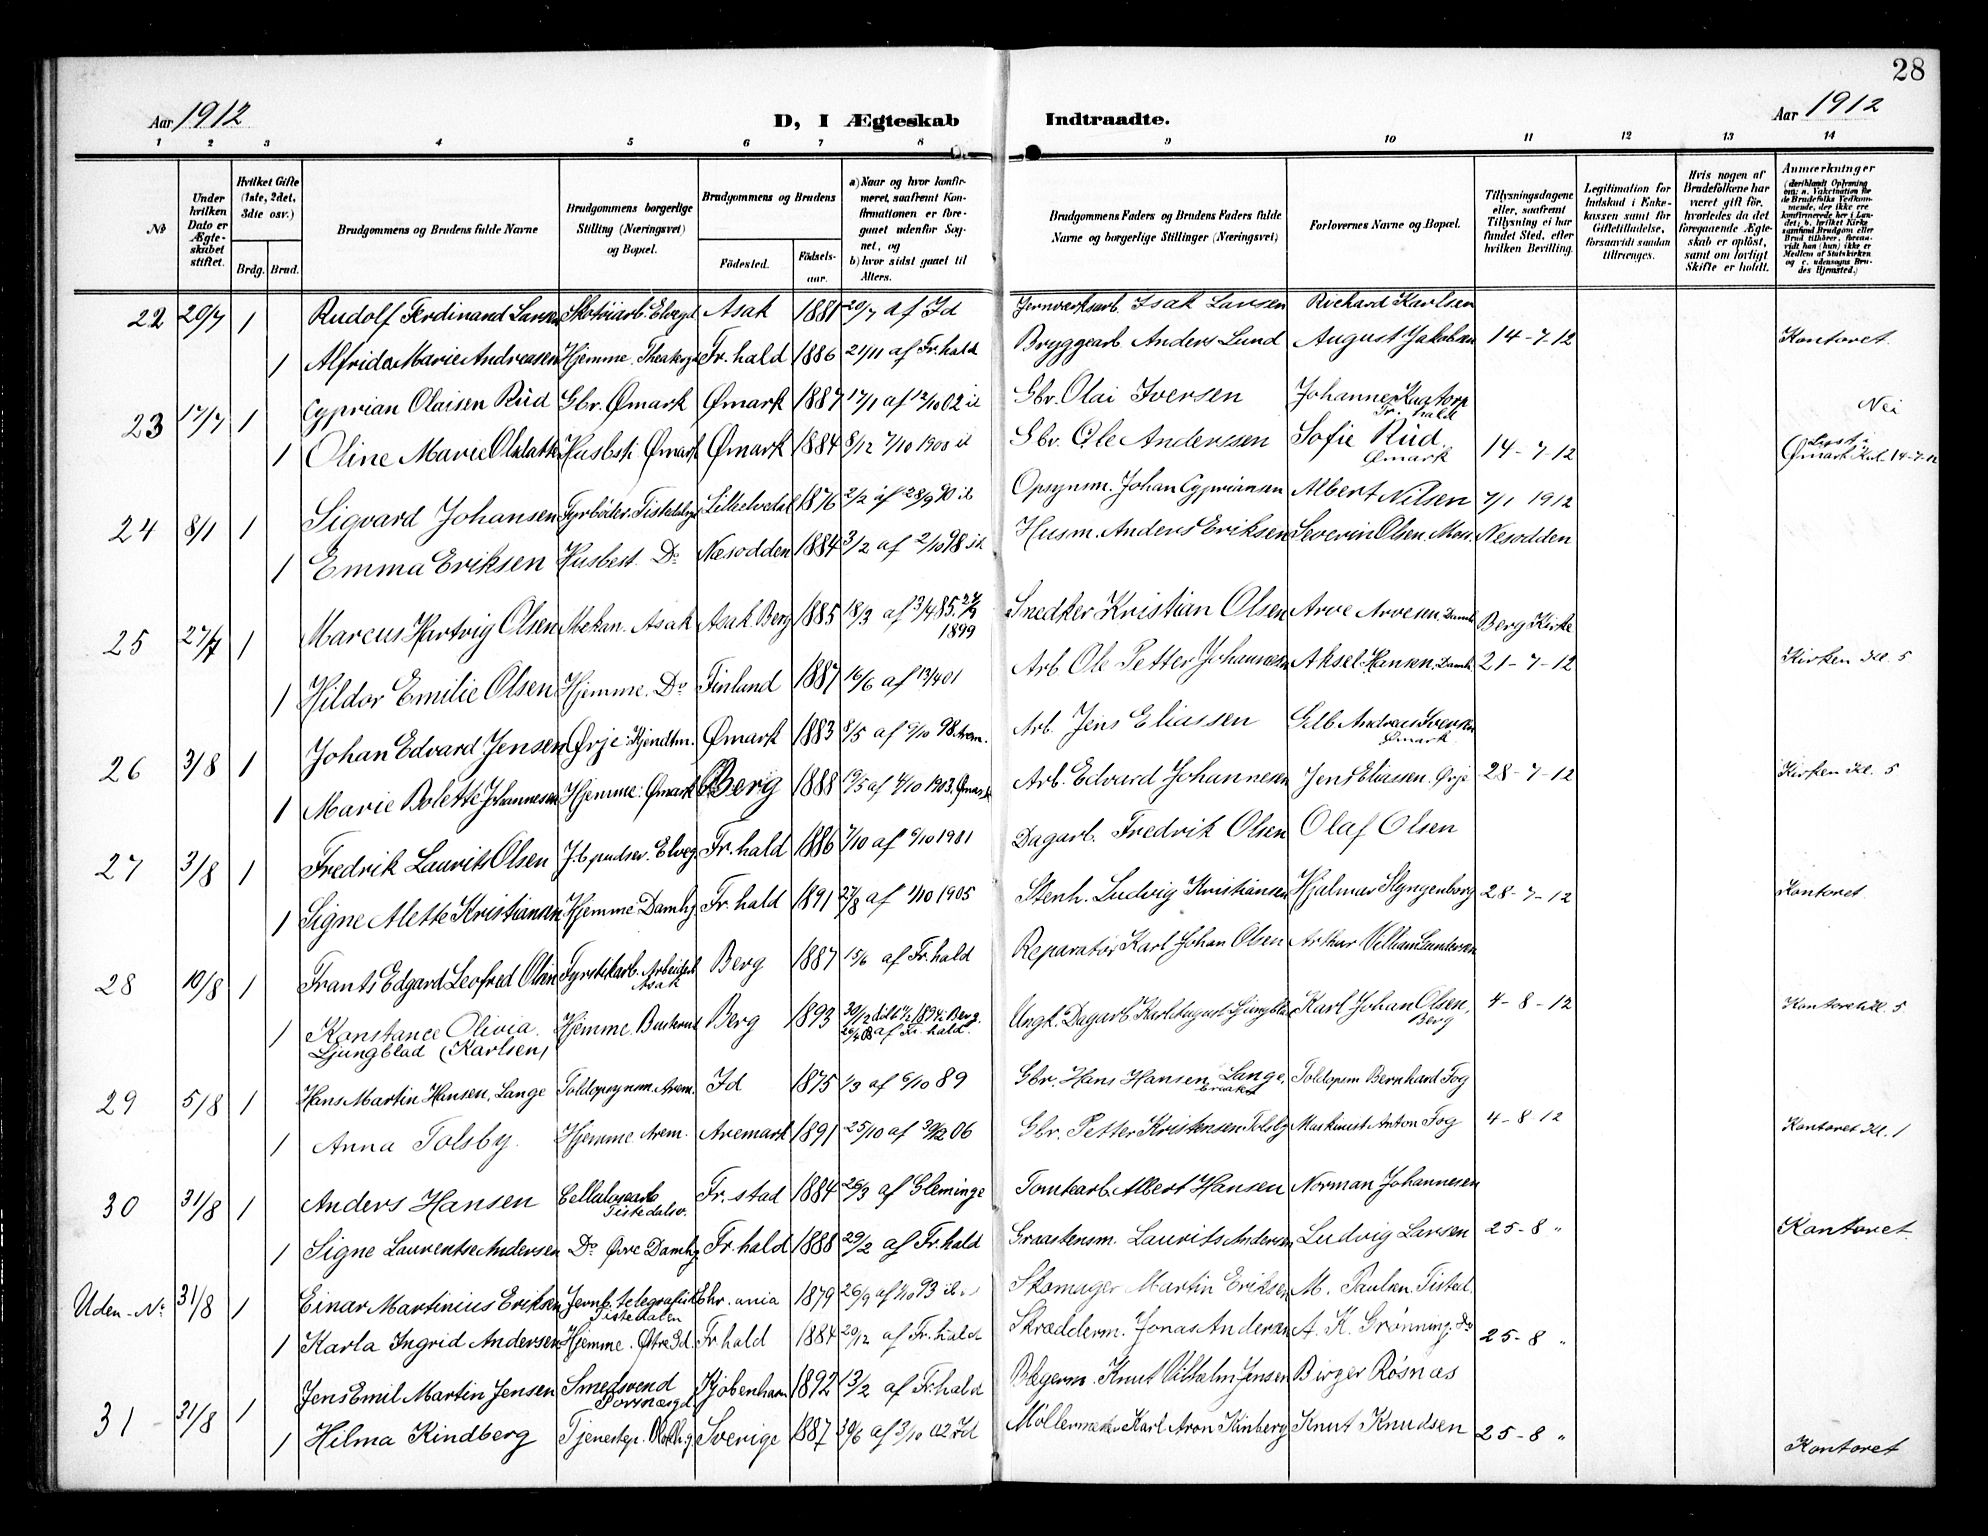 28
Aar 1912
D, I Ægteskab Indtraadte.
Aar 1912
1 2 3 4 5 6 7 8 9 10 11 12 13 14
No
Under hvilken Dato er Ægteskabet stiftet.
Hvilket Gifte (1ste, 2det, 3dte osv.)
Brdg. Brud.
Brudgommens og Brudens fulde Navne
Brudgommens borgerlige Stilling (Næringsvei) og Bopæl.
Brudgommens og Brudens
Fødested.
Fødsels-aar.
a) Naar og hvor konfirmeret, saafremt Konfirmationen er foregaaet udenfor Sognet, og
b) hvor sidst gaaet til Alters.
Brudgommens Faders og Brudens Faders fulde Navne og borgerlige Stillinger (Næringsvei)
Forlovernes Navne og Bopæl.
Tillysningsdagene eller, saafremt Tillysning ei har fundet Sted, efter hvilken Bevilling.
Legitimation for Indskud i Enkekassen samt for Giftetilladelse, forsaavidt saadan tiltrænges.
Hvis nogen af Brudefolkene har været gift før, hvorledes da det foregaaende Ægteskab er opløst, samt om lovligt Skifte er holdt.
Anmærkninger
22 20/7 1 Rudolf Ferdinand Larsen Skotøiarb. Elvegd Asak 1881 20/7 af Id Jernværksarb. Isak Larsen Richard Karlsen
1 Alfrida Marie Andreasen Hjemme. Fr. hald 1886 21/11 af Fr. hald Bryggearb Anders Lund August Jakobsen 14-7-12 Kontoret.
23 17/7 1 Cyprian Olaisen Rüd Gbr. Ømark Ømark 1887 17/1 af 12/10 02 Gbr. Olai Iversen Johannes
Fr. hald Nei
1 Oline Marie Olsdatter Husbest. Ømark Ømark 1884 8/12 Gbr. Ole Andersen Sofie Rüd 14-7-12
Ømark
24 8/1 1 Sigvard Johansen Fyrbøder. Lilleelvedal 1876 2/2 af 28/9 90 Opsynsm. Johan Cypriansen Albert Nilsen 7/1 1912
1 Emma Eriksen Husbest. Do Næsodden 1884 3/2 af 2/10 98 Husm. Anders Eriksen Severin Olsen Moss. Nesodden
25 27/7 1 Marcus Hartvig Olsen Mekan. Asak Asak Berg 1885 18/3 af
1899 Snedker Kristian Olsen Arve Arvesen Berg Kirke
1 Hildor Emilie Olsen Hjemme. Do Finland 1887 16/6 af 13/4 01 Arb. Ole Petter Johannesen Aksel Hansen 21-7-12 Kirken Kl. 5
26 3/8 1 Johan Edvard Jensen Ørje Ømark 1883 8/5 af 9/10 98 Arem. Arb. Jens Eliassen Gbr Andreas Iversen
Ømark
1 Marie Bolette Johannesen Hjemme: Ømark Berg 1888 19/5 af 4/10 1903. Ømark Arb. Edvard Johannesen Jens Eliassen Ørje 28-7-12 Kirken Kl. 5
27 3/8 1 Fredrik Laurits Olsen Elveg. Fr. hald 1886 7/10 af 6/10 1901 Dagarb. Fredrik Olsen Olaf Olsen
1 Signe Alette Kristiansen Hjemme Damhg. Fr. hald 1891 27/8 af 1/10 1905 Stenh. Ludvig Kristiansen Hjalmar Slyngenborg 28-7-12 Kontoret.
28 10/8 1 Frants Edgard Leofred Olsen Fyrstikarb.
Asak Berg 1887 15/6 af Fr. hald Reparatør Karl Johan Olsen Arthur Vilhelm Gundersen
1 Konstance Olivia.
Ljungblad (Karlsen) Hjemme. Berg 1893 30/12 Berg.
af Fr. hald. Ungk. Dagarb. Karl August Ljungblad Karl Johan Olsen,
Berg 4-8-12 Kontoret Kl. 5
29 5/8 1 Hans Martin Hansen, Lange Toldopsynsm. Arem. Id 1875 1/3 af 6/10 89 Gbr. Hans Hansen Lange. Toldopsm Bernhard Tog
1 Anna Tolsby. Hjemme Arem. Aremark 1891 25/10 af 30/12 06 Gbr. Petter Kristensen Tolsby Maskinist Anton Tog 4-8-12 Kontoret Kl. 1
30 31/8 1 Anders Hansen Cellulosearb
Tistedalsv. Fr. stad 1884 26/3 af Gleminge Tomtearb. Albert Hansen Norman Johannesen
1 Signe Laurentse Andersen Do Øvre Damhg Fr. hald 1888 29/2 af Fr. hald Graastensm. Laurits Andersen Ludvig Larsen 25-8 " Kontoret.
Uden-No 31/8 1 Einar Martinius Eriksen Jernb. telegrafist
Tistedalen Chr. ania 1879 26/9 af 1/10 93 Skomager Martin Eriksen M. Paulsen Tistedal.
1 Karla Ingrid Andersen Hjemme. Fr. hald 1884 20/12 af Fr. hald Skrædderm. Jonas Andersen A. K. Grønning. Do 25-8 "
31 31/8 1 Jens Emil Martin Jensen Smedsvend
Kjøbenhavn 1892 13/2 af Fr. hald Bagerm. Knut Vilhelm Jensen Birger Røsnæs
1 Hilma Kindberg Tjenestep. Sverige 1887 30/6 af 3/10 02 Id Møllermester Karl Aron Kinberg Knut Knudsen 25-8 " Kontoret